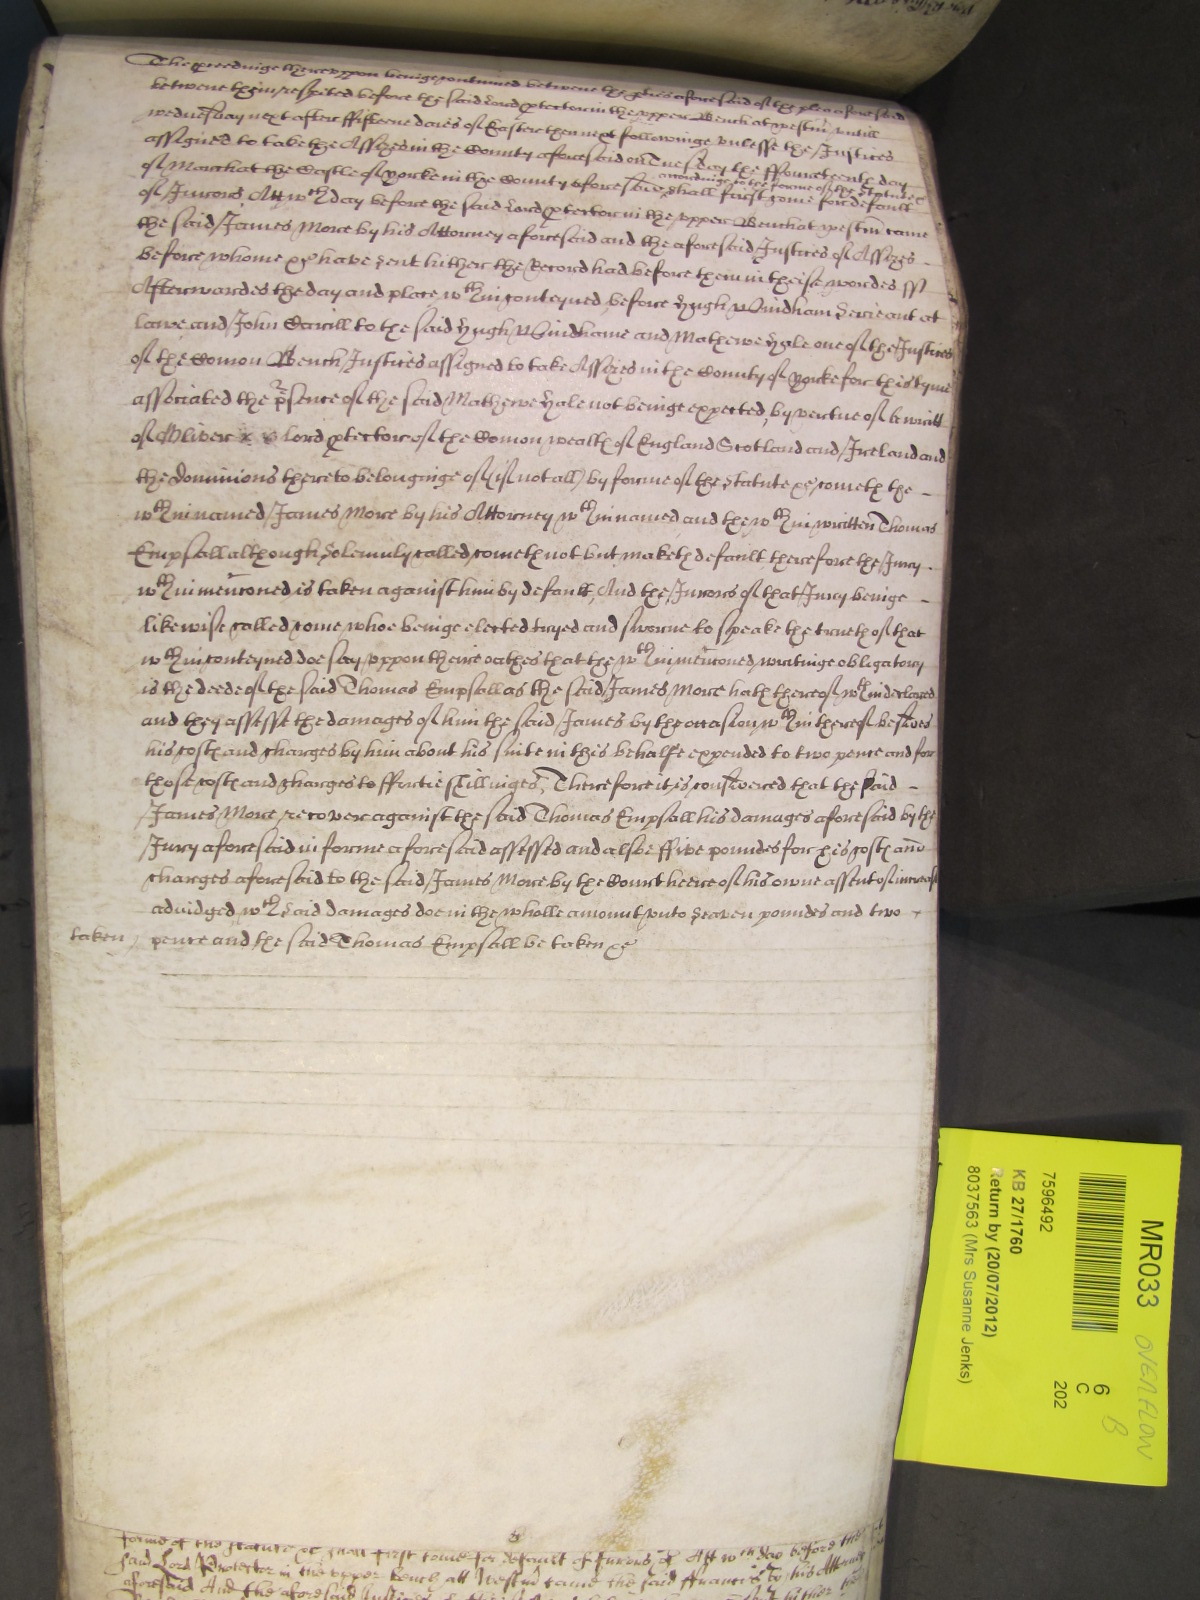 The p̱ceedinge thereuppon beinge continued betweene the p̱ties aforesaid of the plea aforesaid
betweene them respited before the said Lord p̱tector in the upper Bench at westm̃ untill
wednesday next after ffifteene daies of Easter then next followinge unlesse the Justices
assigned to take the Assizes in the County aforesaid on Tuesday the ffourteenth day
of March at the Castle of Yorke in the County aforesaid shall first come for default
accordinge to the forme of the Statute &c
of Jurors Att wch day before the said Lord p̱tector in the upper Bench at westm̃ came
the said James More by his Attorney aforesaid and the aforesaid Justices of Assizes
before whome &c have sent hither the Record had before them in theise wordes ss
Afterwardes the day and place wthin conteyned before Hugh Windham Serieant at
lawe and John Sarcill to the said Hugh Windhame and Mathewe Hale one of the Justices
of the Comon Bench Justices assigned to take Assizes in the County of Yorke for this tyme
associated the p̱sence of the said Mathewe Hale not beinge expected, by vertue of a writt
of Oliver Lord p̱tector of the Comon wealth of England Scotland and Ireland and
the dominions thereto belonginge of (if not all) by forme of the Statute &c cometh the
wthin named James More by his Attorney wthin named and the wthin written Thomas
Empsall although Solemnly called cometh not but maketh default therefore the Jury
wthin menc̃oned is taken against him by default, And the Jurors of that Jury beinge
likewise called come whoe beinge elected tryed and sworne to speake the trueth of that
wthin conteyned doe say uppon theire oathes that the wthin menc̃oned writinge obligatory
is the deede of the said Thomas Empsall as the said James More hath thereof wthin declared
and they assesse the damages of him the said James by the occasion wthin thereof besides
his costs and charges by him about his suite in this behalfe expended to two pence and for
those costs and charges to ffortie shillinges, Therefore it is considered that the said
James More recover against the said Thomas Empsall his damages aforesaid by the
Jury aforesaid in forme aforesaid assessed and alsoe ffive poundes for his costs and
charges aforesaid to the said James More by the Court heere of his owne assent of increase
adiudged wch said damages doe in the wholle amount unto Seaven poundes and two
taken pence and the said Thomas Empsall be taken &c
forme of the Statute &c shall first come for default of Jurors &c Att wch day before the
said Lord Protector in the upper bench att Westm̃ came the said ffrancis by his Attorney
aforesaid And the aforesaid Justices
MR033
OVERFLOW
B
6
C
202
7596492
KB 27/1760
Return by (20/07/2012)
8037563 (Mrs Susanne Jenks)